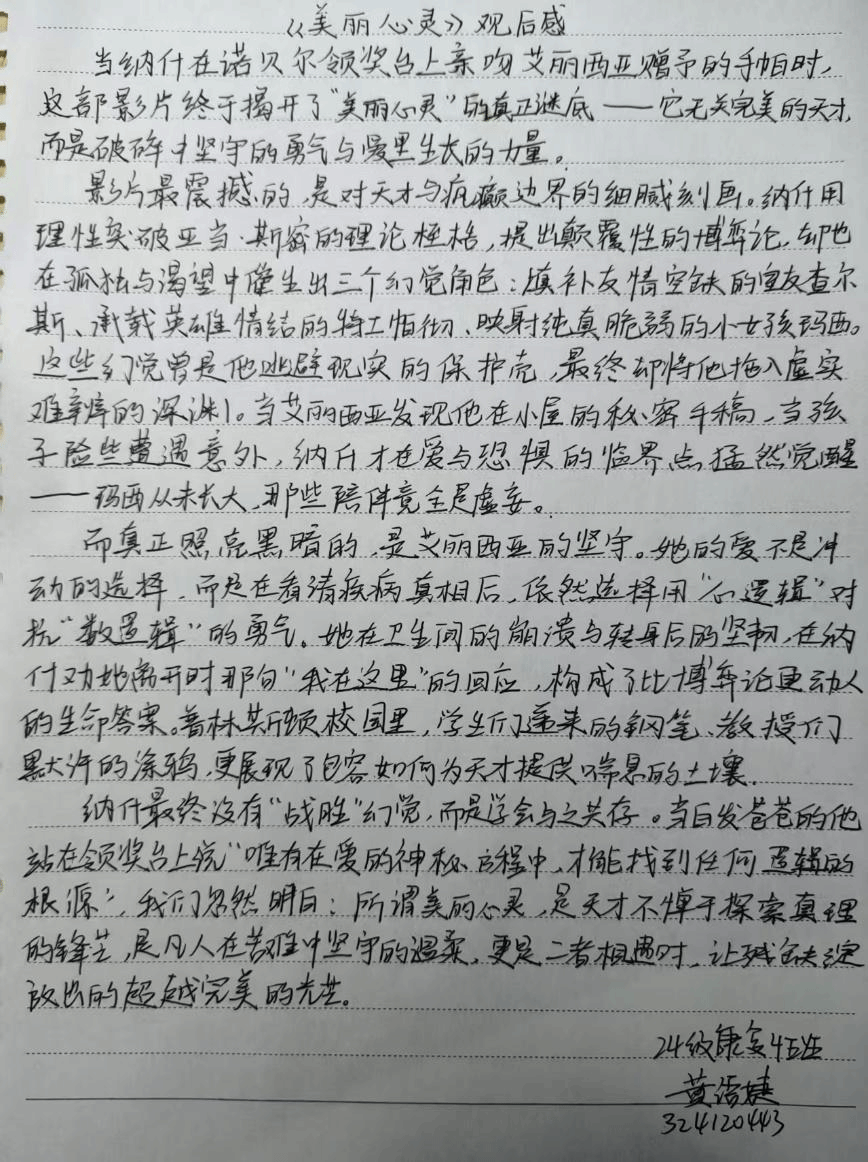 《美丽心灵》观后感
当纳什在诺贝尔领奖台上亲吻艾丽西亚赠予的手帕时，
这部影片终于揭开了“美丽心灵”的真正谜底——它无关完美的天才，
而是破碎中坚守的勇气与爱里生长的力量。
影片最震撼的，是对天才与疯癫边界的细腻刻画。纳什用
理性突破亚当·斯密的理论桎梏，提出颠覆性的博弈论，却也
在孤独与渴望中催生出三个幻觉角色：填补友情空缺的室友查尔
斯、承载英雄情结的特工帕彻、映射纯真脆弱的小女孩玛西。
这些幻觉曾是他逃避现实的保护壳，最终却将他拖入虚实
难辨的深渊。当艾丽西亚发现他在小屋的秘密手稿，当孩
子险些遭遇意外，纳什才在爱与恐惧的临界点猛然觉醒
——玛西从未长大，那些陪伴竟全是虚妄。
而真正照亮黑暗的，是艾丽西亚的坚守。她的爱不是冲
动的选择，而是在看清疾病真相后，依然选择用“心逻辑”对
抗“数逻辑”的勇气。她在卫生间的崩溃与转身后的坚韧，在纳
什劝她离开时那句“我在这里”的回应，构成了比博弈论更动人
的生命答案。普林斯顿校园里，学生们递来的钢笔、教授们
默许的涂鸦，更展现了包容如何为天才提供喘息的土壤。
纳什最终没有“战胜”幻觉，而是学会与之共存。当白发苍苍的他
站在领奖台上说“唯有在爱的神秘方程中，才能找到任何逻辑的
根源”，我们忽然明白：所谓美丽心灵，是天才不惮于探索真理
的锋芒，是凡人在苦难中坚守的温柔，更是二者相遇时，让残缺绽
放出的超越完美的光芒。
24级康复4班
324120443